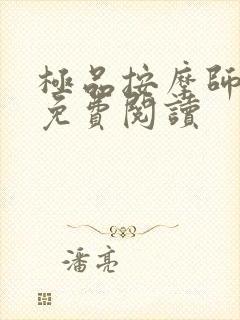 極品按摩師
免費閱讀
潘亮